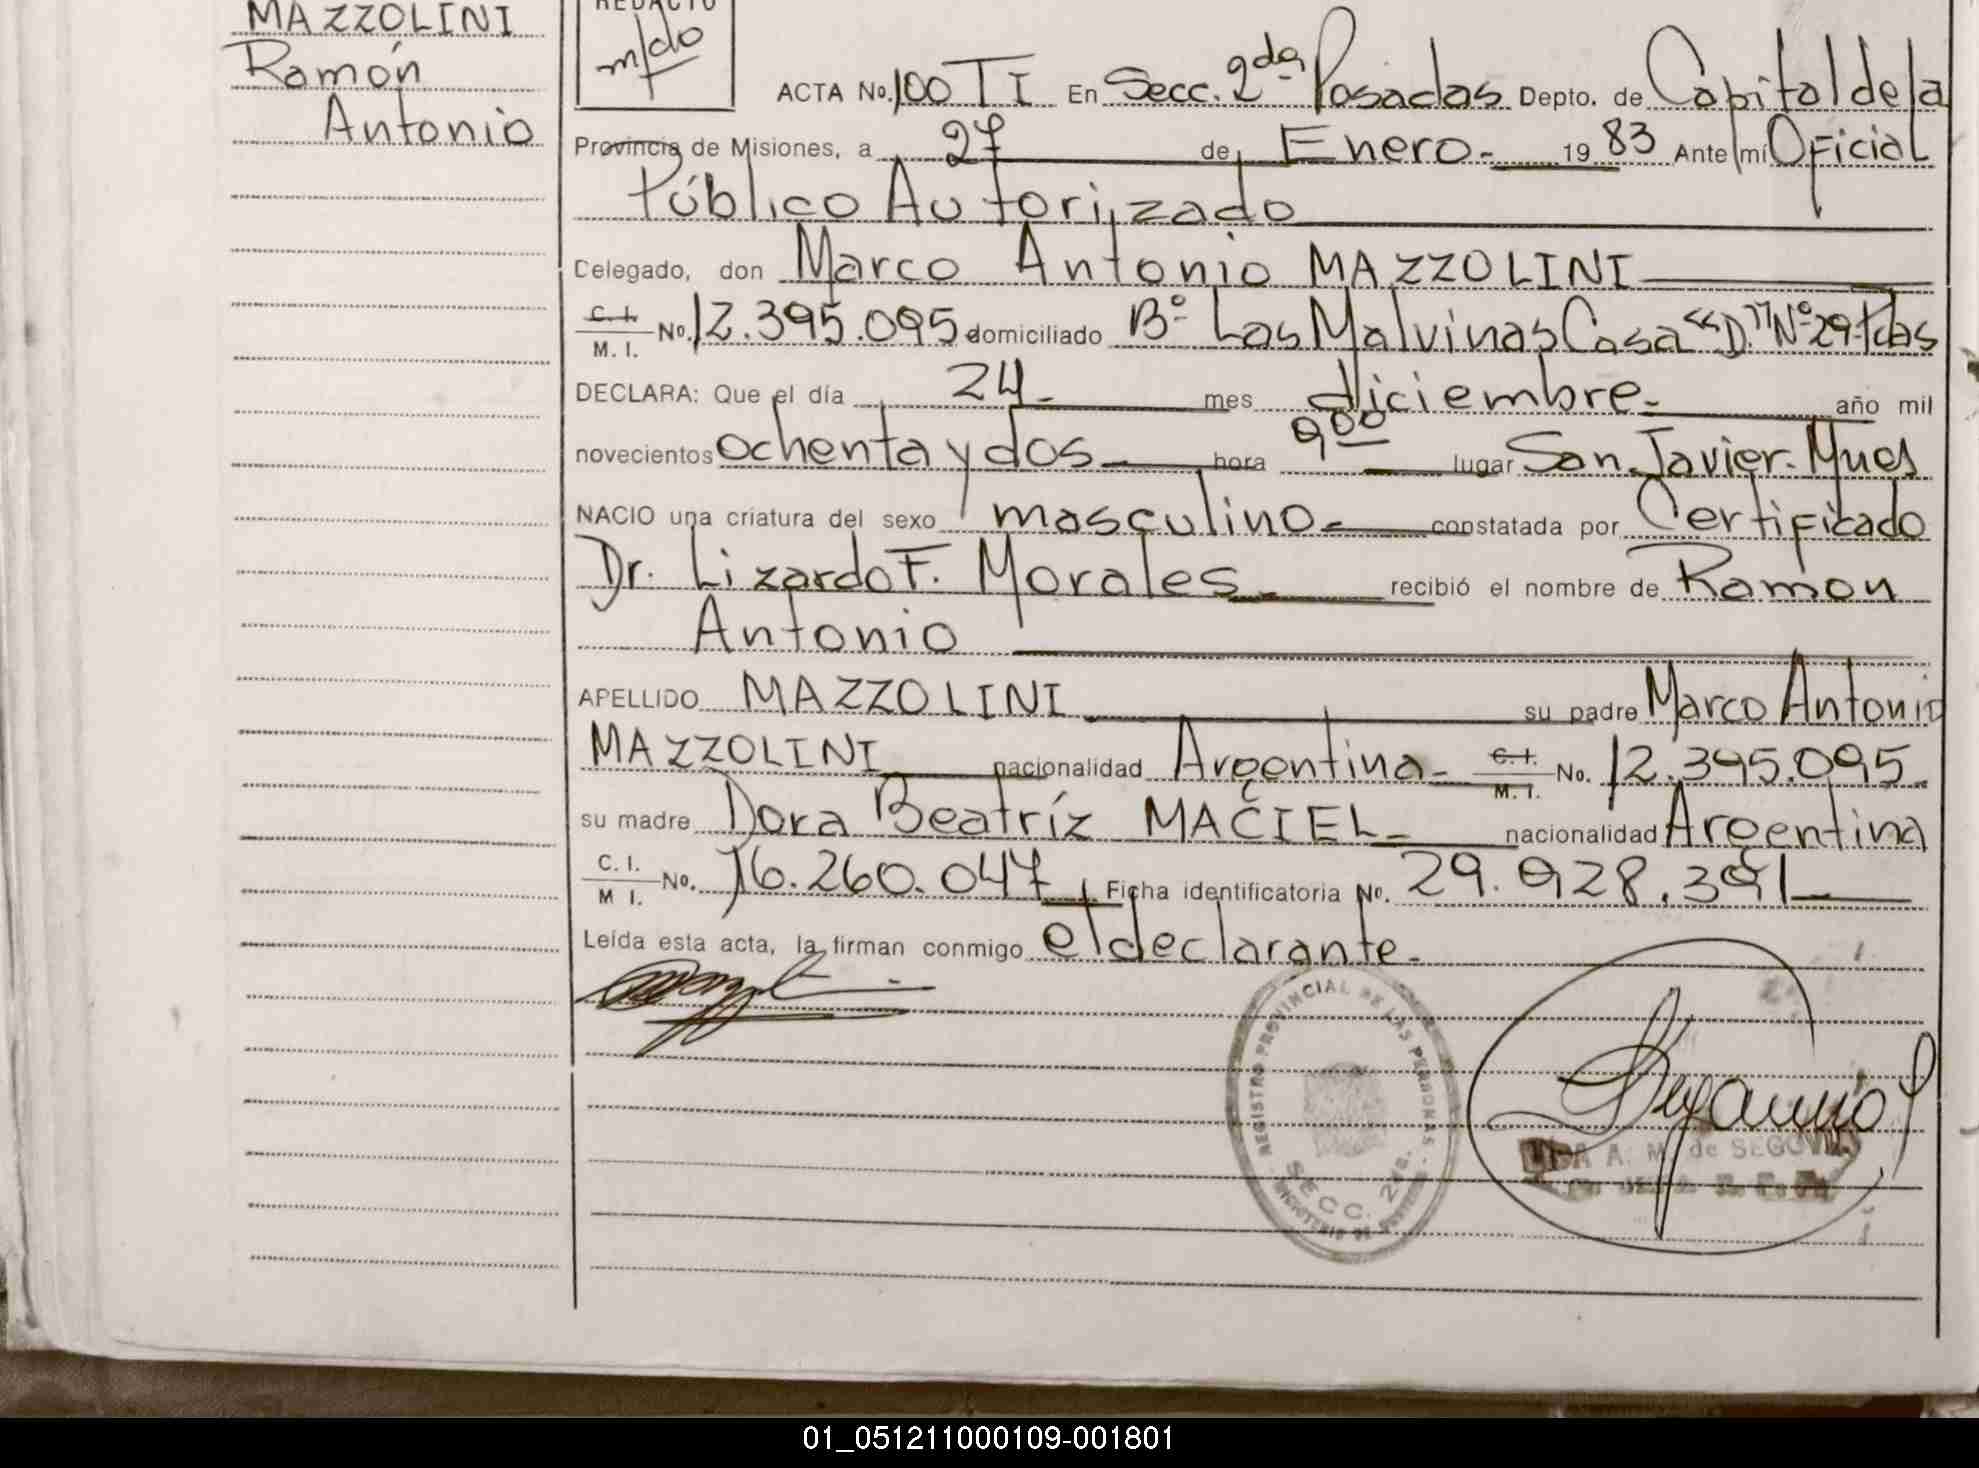 MAZZOLINI
Ramón
Antonio
REDACTO
ACTA No. 100 TI En Secc. 2da Posadas Depto. de Capital de la
Provincia de Misiones, a 27 de Enero.- 1983 Ante mí Oficial
Público Autorizado
Celegado, don Marco Antonio MAZZOLINI
C. I. M. I. No. 12.395.095 domiciliado Bº Las Malvinas Casa "D." Nº 29-Pdas
DECLARA: Que el día 24- mes diciembre.- año mil
novecientos ochenta y dos- hora 900 lugar San Javier- Mnes
NACIO una criatura del sexo masculino- constatada por Certificado
Dr. Lizardo F. Morales- recibió el nombre de Ramon
Antonio
APELLIDO MAZZOLINI su padre Marco Antonio
MAZZOLINI nacionalidad Argentina- C. I. M. I. No. 12.395.095-
su madre Dora Beatríz MACIEL- nacionalidad Argentina
C. I. M I. No. 16.260.047 Ficha identificatoria No. 29.928.391-
Leída esta acta, la firman conmigo el declarante.-
REGISTRO PROVINCIAL DE LAS PERSONAS
SECC. 2da.
A. M. de SEGOVIA
01_051211000109-001801